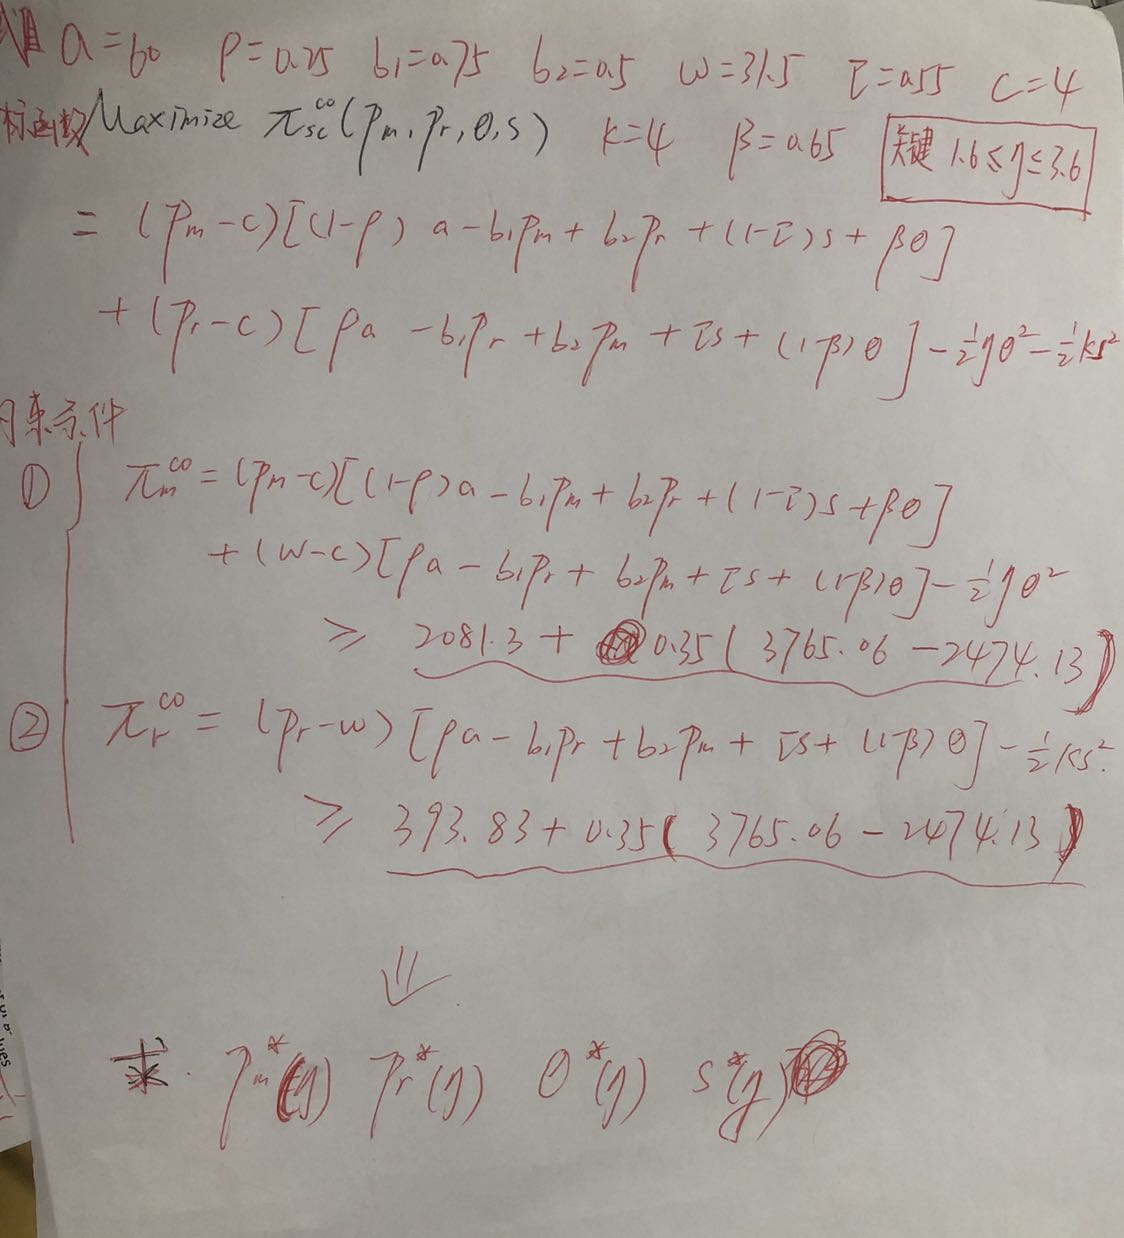 a=60 ρ=0.25 b₁=0.75 b₂=0.5 w=31.5 τ=0.55 c=4
标函数 Maximize π_sc^co (p_m, p_r, θ, s) k=4 β=0.65 关键 1.6≤η≤3.6
= (p_m-c)[(1-ρ) a - b₁p_m + b₂p_r + (1-τ)s + βθ]
+ (p_r-c) [ρa - b₁p_r + b₂p_m + τs + (1-β)θ] - ½ηθ² - ½ks²
约束条件
① π_m^co = (p_m-c)[(1-ρ)a - b₁p_m + b₂p_r + (1-τ)s + βθ]
+ (w-c)[ρa - b₁p_r + b₂p_m + τs + (1-β)θ] - ½ηθ²
≥ 2081.3 + 0.35( 3765.06 - 2474.13 )
② π_r^co = (p_r-w) [ρa - b₁p_r + b₂p_m + τs + (1-β)θ] - ½ks².
≥ 393.83 + 0.35( 3765.06 - 2474.13 )
⇓
求. p_m*(η) p_r*(η) θ*(η) s*(η)